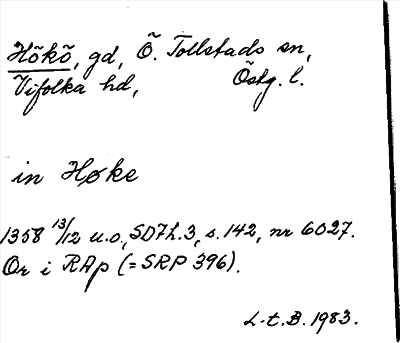 Hökö, gd, Ö. Tollstads sn,
Vifolka hd, Östg. l.
in Høke
1358 13/12 u.o., SD7h.3, s.142, nr 6027.
Or i RAp (=SRP 396).
L-t.B. 1983.